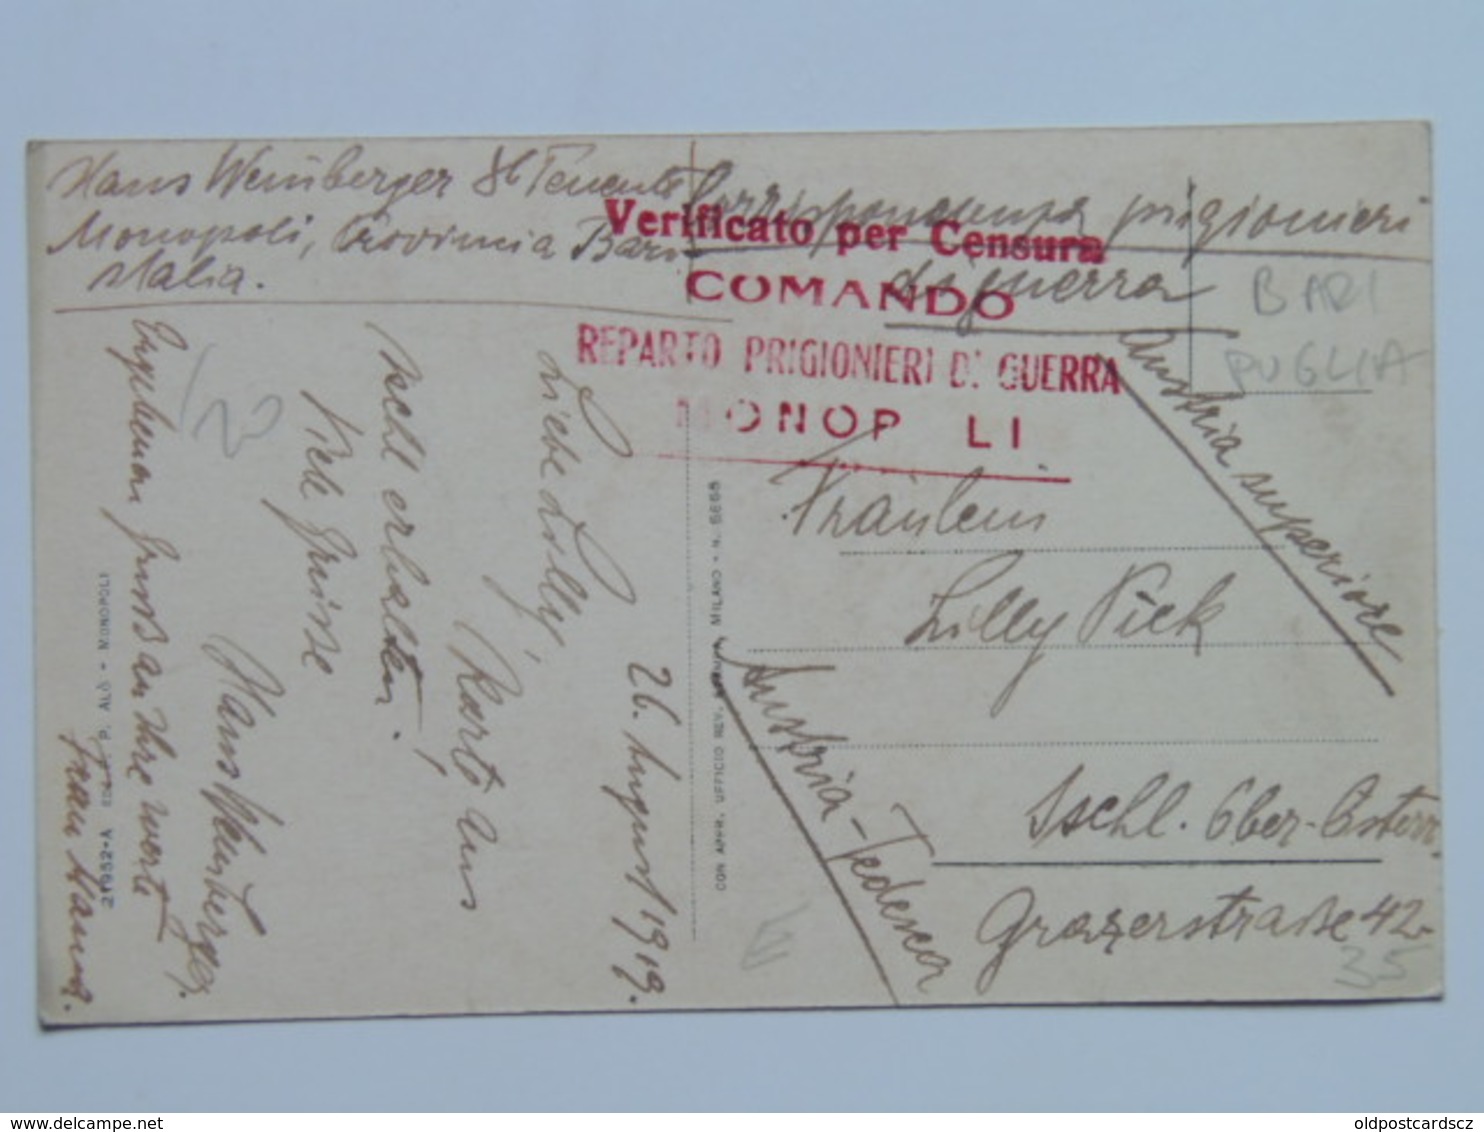 Hans Weinberger Tenente
Monopoli, Provincia Bari
Italia.
Corrispondenza prigionieri
di guerra
Verificato per Censura
COMANDO
REPARTO PRIGIONIERI DI GUERRA
MONOP LI
BARI
PUGLIA
Austria superiore
Fräulein
Lilly Pick
Ischl. Ober-Österr.
Grazerstraße 42
Austria-Tedesca
35
20
26. August 1919.
Liebe Lilly,
Karte uns
recht erhalten.
Viele Grüsse
Hans Weinberger.
Gruss an Ihre werte
Frau Mama.
21952-A EDIT. P. ALÒ - MONOPOLI
CON APPR. UFFICIO REV. MILANO - N. 5668
delcampe.net
oldpostcardscz